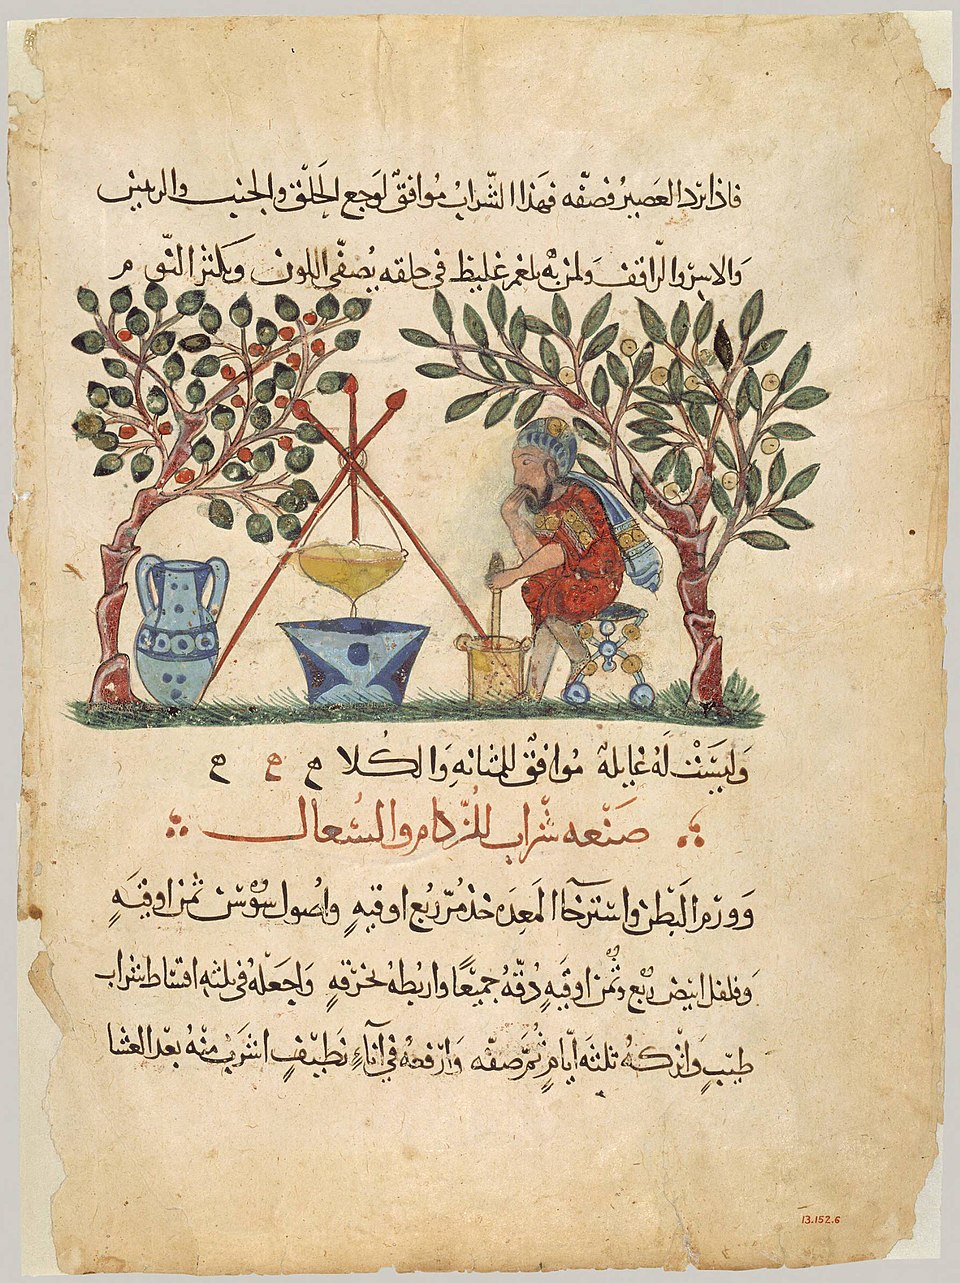 فاذا برد العصير فصفّه فهذا الشّراب مُوافقٌ لوَجع الحَلّق والجنب والريتين
وَالاسر والرّاقف وَلمن به بلغم غليظ في حلقه يُصفّي اللون وَيكثر النّوم م
وَليسَتْ لَهُ غايلة مُوافقٌ للمثانه وَالكُلا ح ح ح
صَنْعه شَراب للزّكام والسُعال
وَورَم البَطن واسْترخا المَعِدَه خذ مُرّ ربُع اوقيهٍ واصُول سُوْس ثمن اوقيَهٍ
وَفلفل ابيض ربُع وثُمن اوقيَهٍ دُقّهُ جميعًا واربطه بخرقهٍ وَاجعَلهُ في ثلثه اقسَاط شراب
طيّبٍ وَاتْركهُ ثلثه ايّامٍ ثُمّ صفّه وَارْفعهُ في اناءٍ نَظيفٍ اشرَب منْهُ بعْد العشا
13.152.6